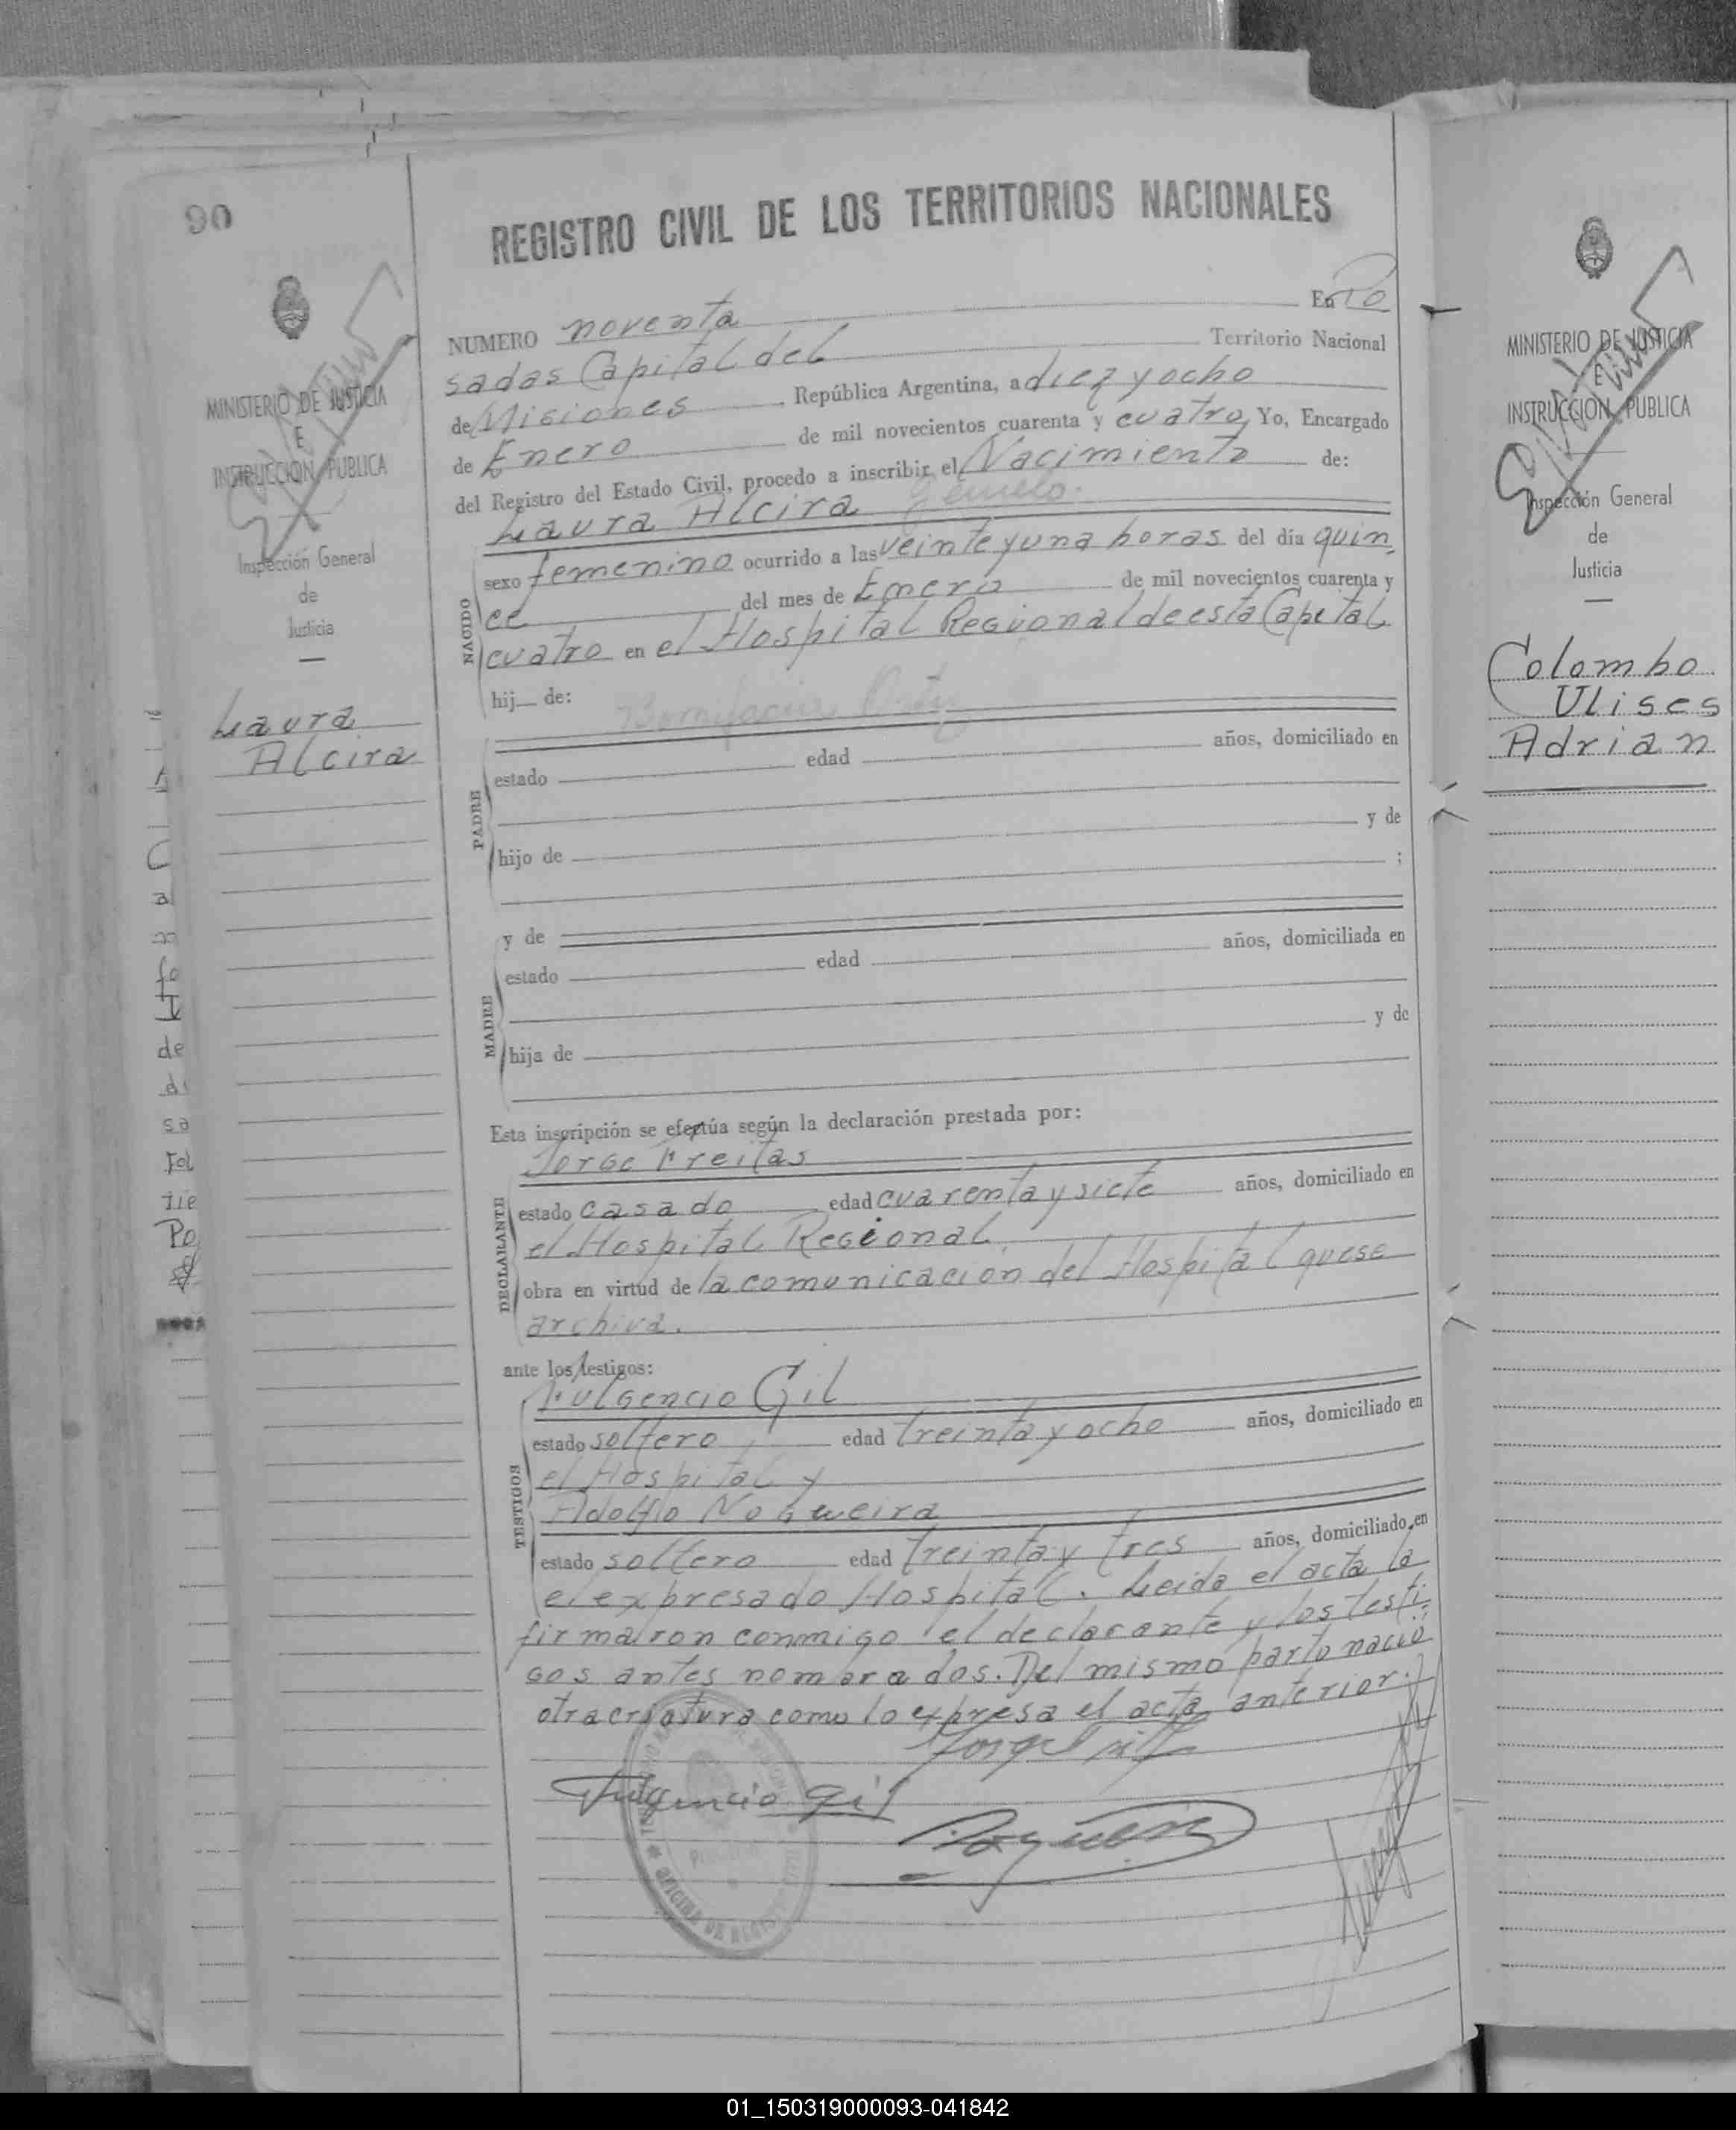 90
REGISTRO CIVIL DE LOS TERRITORIOS NACIONALES
NUMERO noventa En Po
sadas Capital del Territorio Nacional
de Misiones República Argentina, a diez y ocho
de Enero de mil novecientos cuarenta y cuatro, Yo, Encargado
del Registro del Estado Civil, procedo a inscribir el Nacimiento de:
Laura Alcira Gemelo.
sexo femenino ocurrido a las veinte y una horas del día quin
ce del mes de Enero de mil novecientos cuarenta y
cuatro en el Hospital Regional de esta Capital
NACIDO
hij de:
Bonifacia Ortiz
estado edad años, domiciliado en
PADRE
y de
hijo de
;
y de
estado edad años, domiciliada en
MADRE
y de
hija de
Esta inscripción se efectúa según la declaración prestada por:
Jorge Freitas
estado casado edad cuarenta y siete años, domiciliado en
el Hospital Regional.
DECLARANTE
obra en virtud de la comunicacion del Hospital que se
archiva.
ante los testigos:
Fulgencio Gil
estado soltero edad treinta y ocho años, domiciliado en
el Hospital y
TESTIGOS
Adolfo Nogueira
estado soltero edad treinta y tres años, domiciliado en
el expresado Hospital. Leida el acta la
firmaron conmigo el declarante y los testi
gos antes nombrados. Del mismo parto nacio
otra criatura como lo expresa el acta anterior.
Fulgencio Gil
MINISTERIO DE JUSTICIA
E
INSTRUCCION PUBLICA
Inspección General
de
Justicia
Laura
Alcira
MINISTERIO DE JUSTICIA
E
INSTRUCCION PUBLICA
Inspección General
de
Justicia
Colombo
Ulises
Adrian
01_150319000093-041842